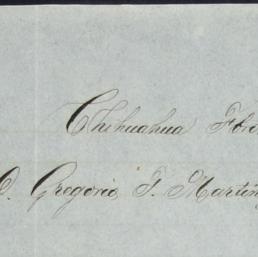 Chihuahua Fbro
D. Gregorio F. Martin